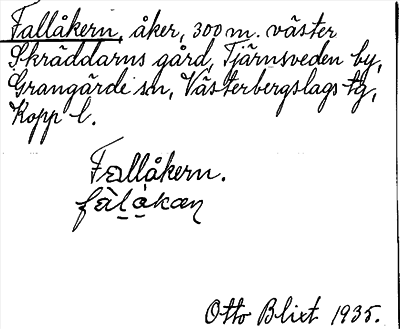 Fallåkern, åker, 300 m. väster
Skräddarns gård, Tjärnsveden by,
Grangärde sn, Västerbergslags tg,
Kopp. l.
Fallåkern.
Otto Blixt 1935.